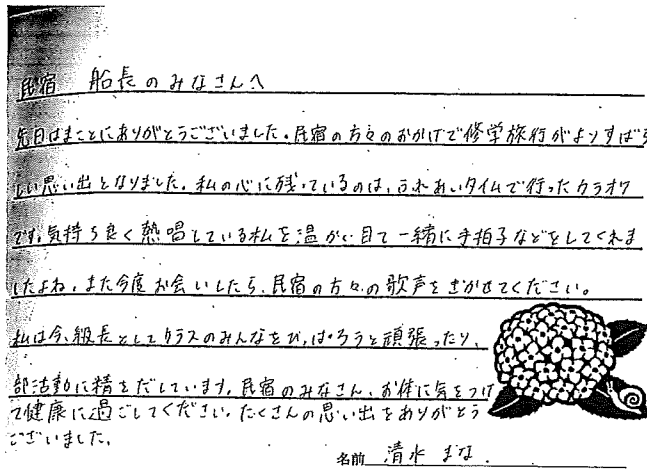 民宿 船長のみなさんへ
先日はまことにありがとうございました。民宿の方々のおかげで修学旅行がよりすばら
しい思い出となりました。私の心に残っているのは、ふれあいタイムで行ったカラオケ
です。気持ち良く熱唱している私を温かい目で一緒に手拍子などをしてくれま
したよね。また今度お会いしたら、民宿の方々の歌声をきかせてください。
私は今、級長としてクラスのみんなをひっぱろうと頑張ったり、
部活動に精をだしています。民宿のみなさん、お体に気をつけ
て健康に過ごしてください。たくさんの思い出をありがとう
ございました。
名前 清水 まな